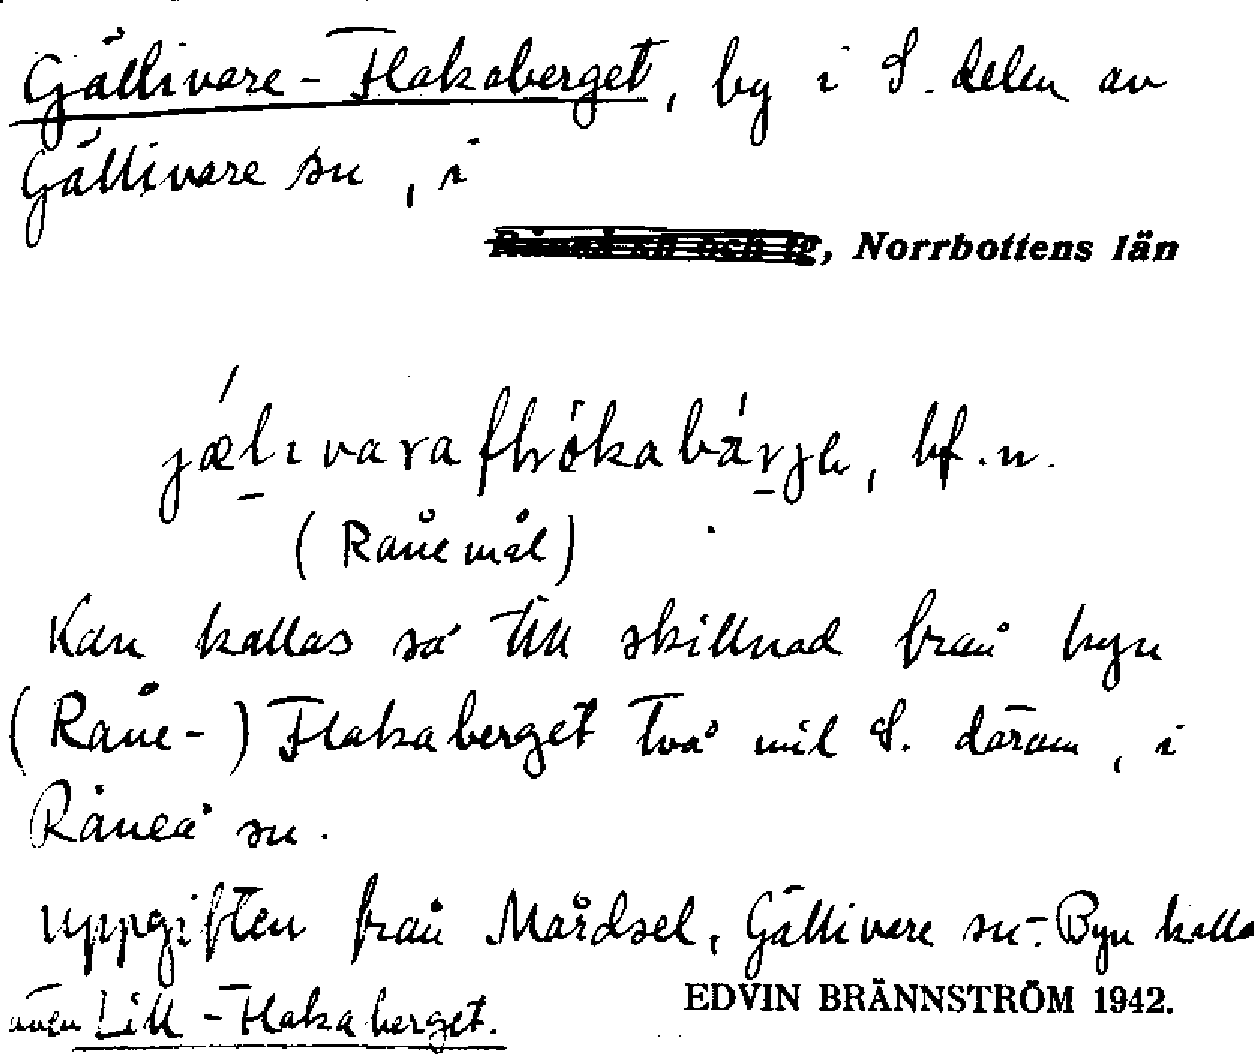 Gällivare-Flakaberget, by i S. delen av
Gällivare sn, i
, Norrbottens län
bf.n.
(Råne mål)
Kan kallas så till skillnad från byn
(Råne-) Flakaberget två mil S. därom, i
Råneå sn.
Uppgiften från Mårdsel, Gällivare sn. Byn kalla
även Lill-Flakaberget.
EDVIN BRÄNNSTRÖM 1942.